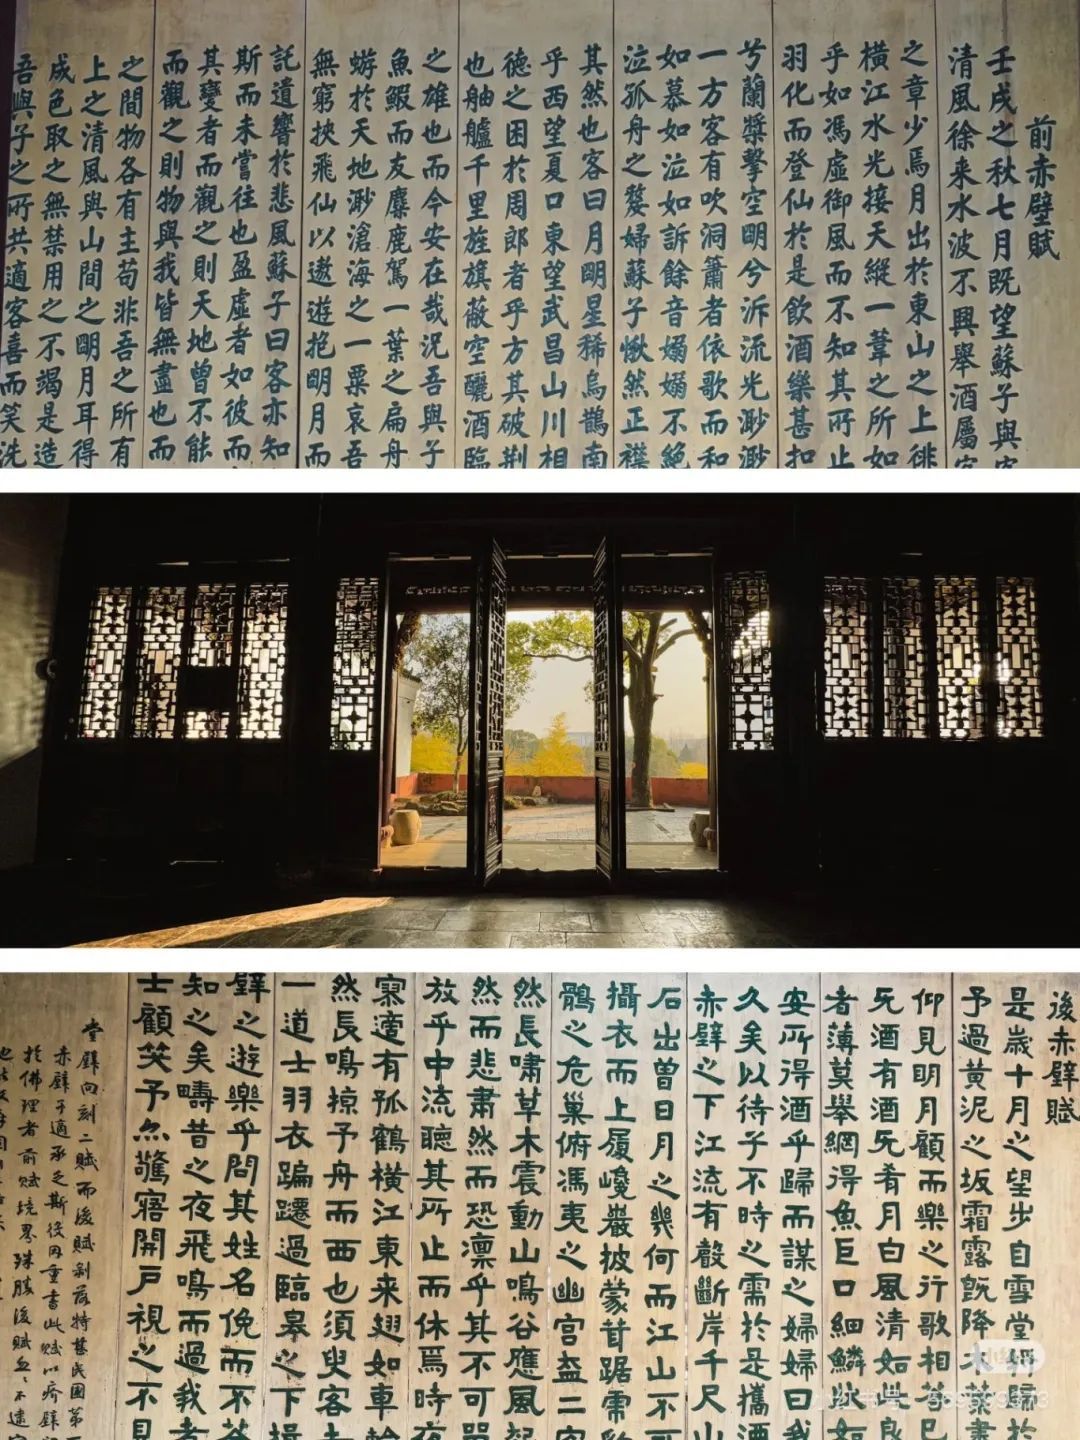 前赤壁賦
壬戌之秋七月既望蘇子與客
清風徐来水波不興舉酒屬客
之章少焉月出於東山之上徘
橫江水光接天縱一葦之所如
乎如馮虛御風而不知其所止
羽化而登仙於是飲酒樂甚扣
兮蘭槳擊空明兮泝流光渺渺
一方客有吹洞簫者依歌而和
如慕如泣如訴餘音嫋嫋不絕
泣孤舟之嫠婦蘇子愀然正襟
其然也客曰月明星稀烏鵲南
乎西望夏口東望武昌山川相
德之困於周郎者乎方其破荆
也舳艫千里旌旗蔽空釃酒臨
之雄也而今安在哉況吾與子
魚鰕而友麋鹿駕一葉之扁舟
蜉於天地渺滄海之一粟哀吾
無窮挾飛仙以遨遊抱明月而
託遺響於悲風蘇子曰客亦知
斯而未嘗往也盈虛者如彼而
其變者而觀之則天地曾不能
而觀之則物與我皆無盡也而
之間物各有主苟非吾之所有
上之清風與山間之明月耳得
成色取之無禁用之不竭是造
吾與子之所共適客喜而笑洗
後赤壁賦
是歲十月之望步自雪堂將歸於
予過黃泥之坂霜露旣降木葉盡
仰見明月顧而樂之行歌相答已
旡酒有酒旡肴月白風清如此良
者薄莫舉網得魚巨口細鱗狀如
安所得酒乎歸而謀之婦婦曰我
久矣以待子不時之需於是攜酒
赤壁之下江流有聲斷岸千尺山
石出曾日月之幾何而江山不可
攝衣而上履巉巖披蒙茸踞虎豹
鶻之危巢俯馮夷之幽宮盖二客
然長嘯草木震動山鳴谷應風起
然而悲肅然而恐凛乎其不可
放乎中流聽其所止而休焉時夜
寥適有孤鶴橫江東来翅如車輪
然長鳴掠予舟而西也須臾客去
一道士羽衣蹁躚過臨皋之下揖
壁之遊樂乎問其姓名俛而不答
知之矣疇昔之夜飛鳴而過我者
士顧笑予亦驚寤開戶視之不見
堂壁向刻二賦而後賦剥落特甚民國第
赤壁予適承乏斯役因重書此賦以
於佛理者前賦境界殊勝後賦
小红书